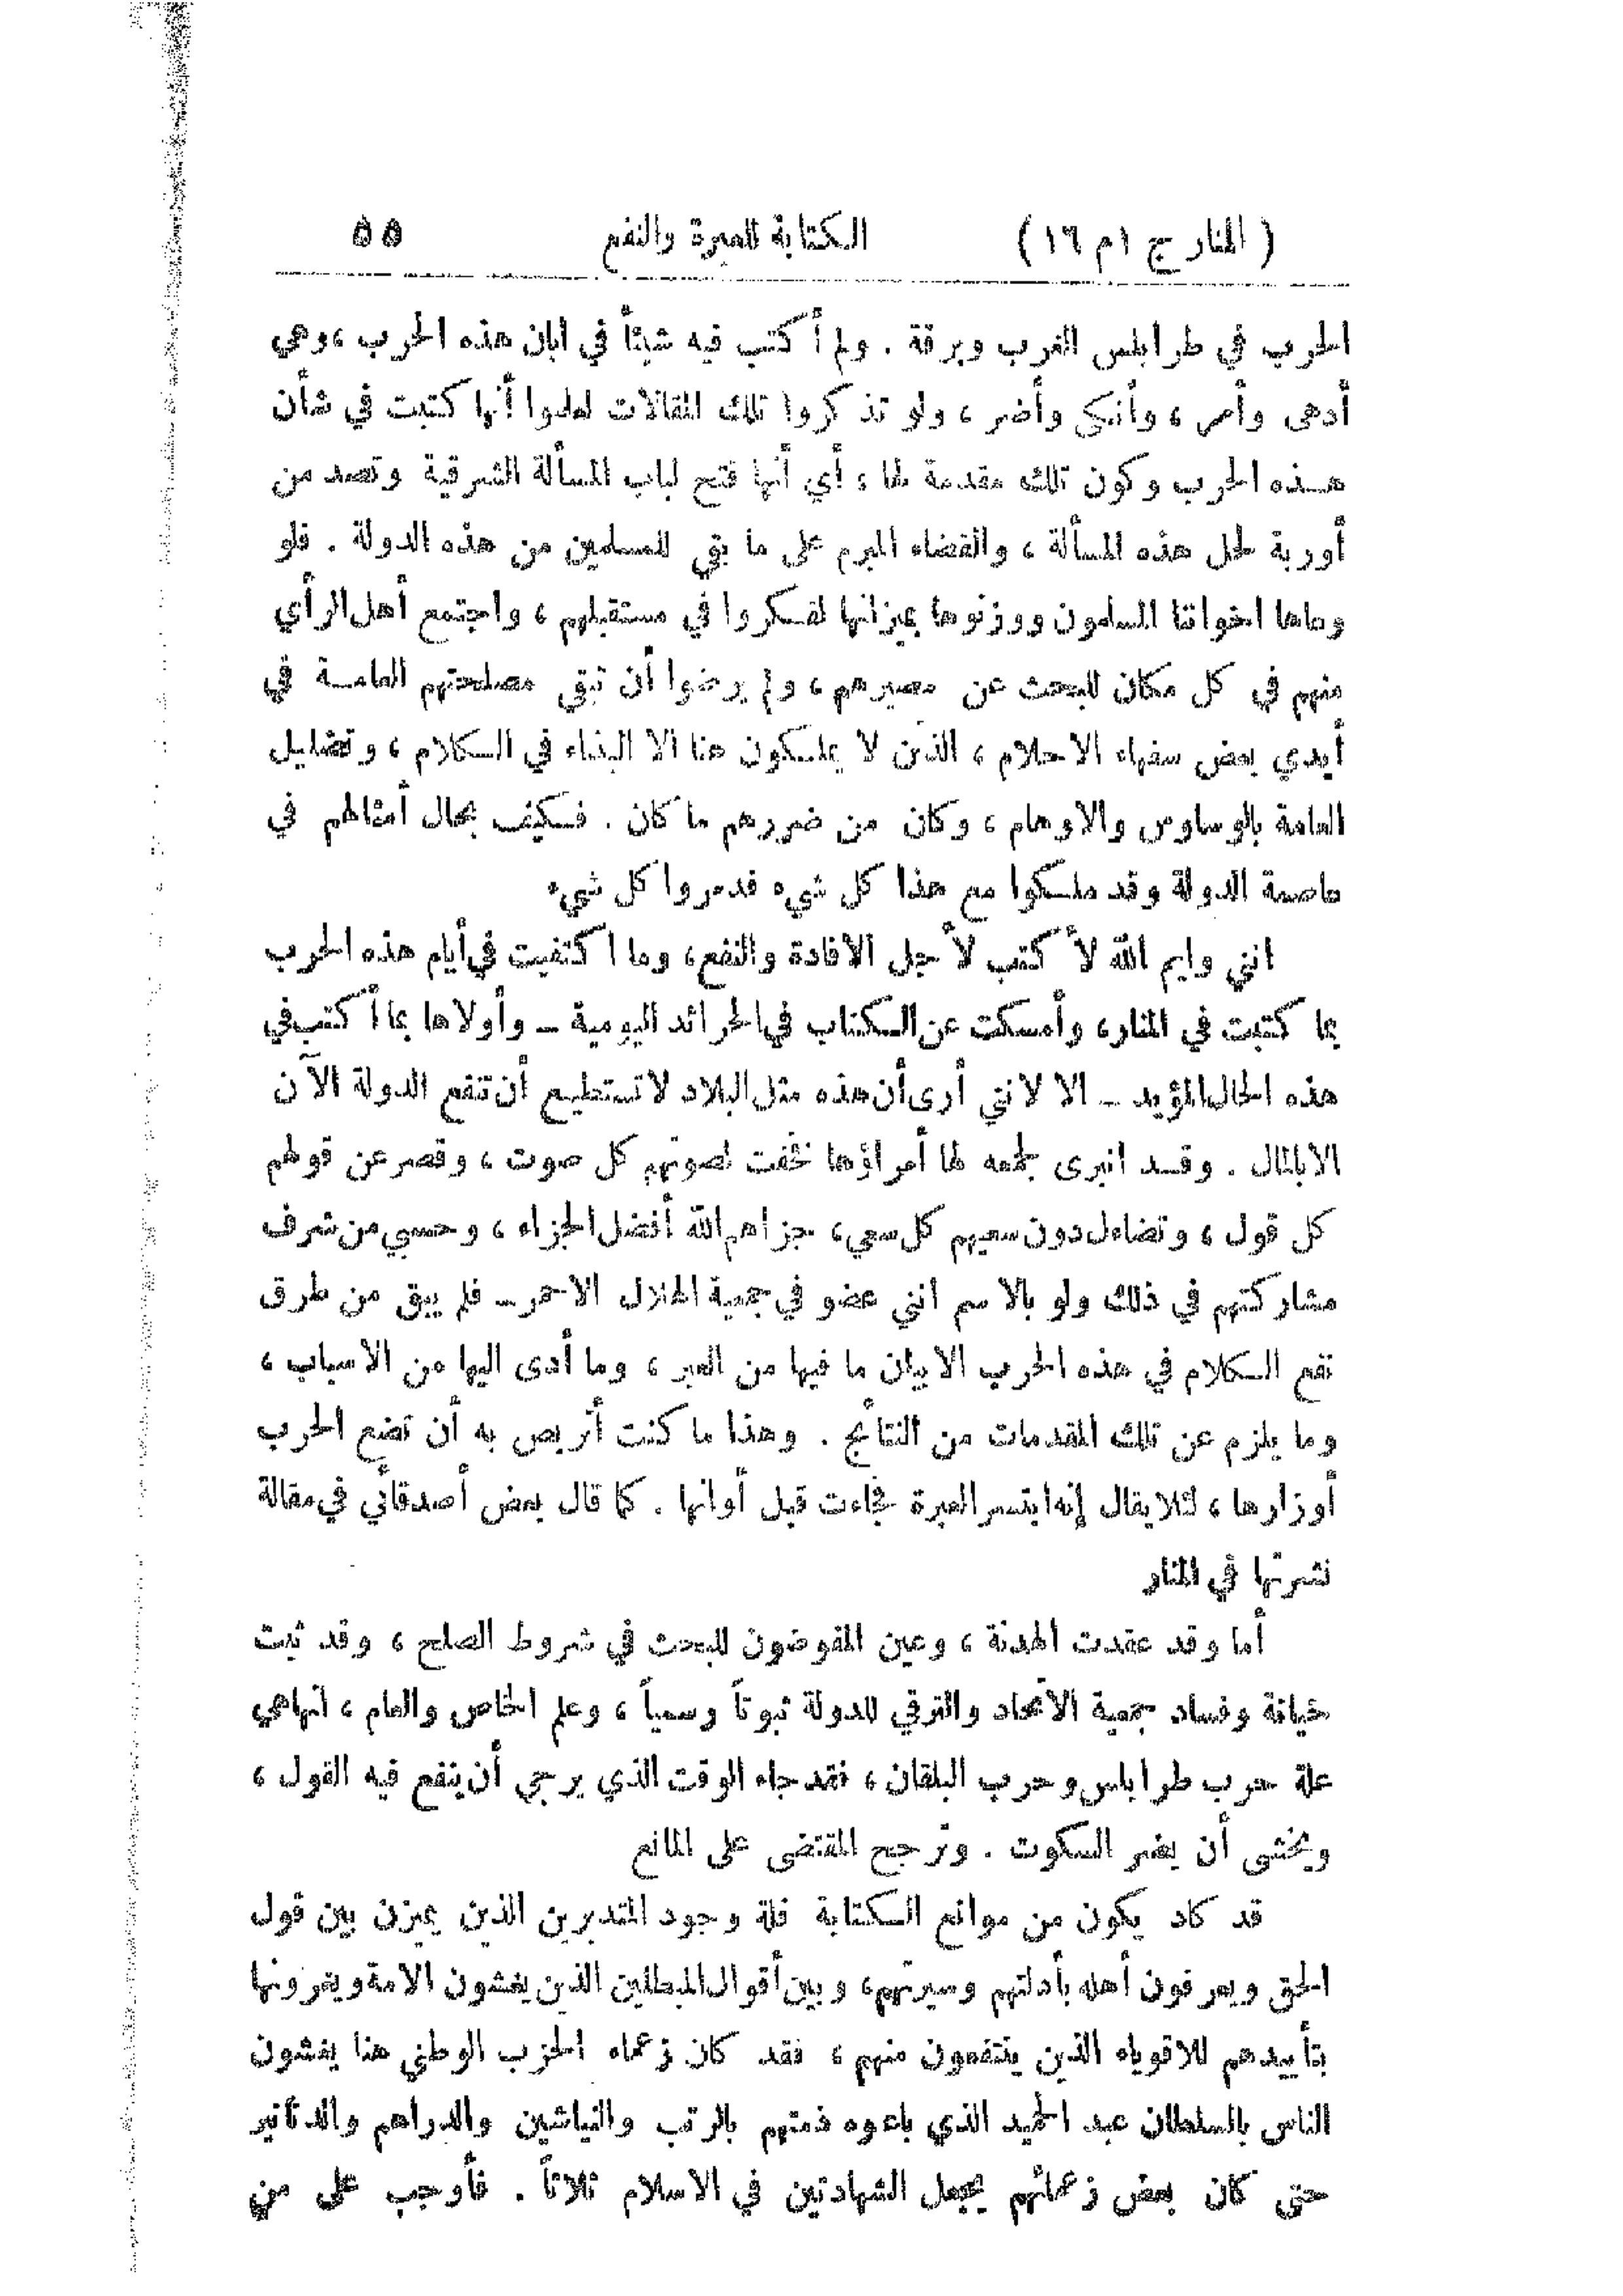 ( المنار ج ١ م ١٦ ) الكتابة للعبرة والنفع ٥٥
الحرب في طرابلس الغرب وبرقة . ولم أكتب فيه شيئاً في ابان هذه الحرب ، وهي
أدهى وأمر ، وأنكى وأضر ، ولو تذكروا تلك المقالات لعلموا أنها كتبت في شأن
هذه الحرب وكون تلك مقدمة لها ، أي أنها فتح لباب المسألة الشرقية وتصد من
أوربة لحل هذه المسألة ، والقضاء المبرم على ما بقي للمسلمين من هذه الدولة . فلو
وعاها اخواننا المسلمون ووزنوها بميزانها لفكروا في مستقبلهم ، واجتمع أهل الرأي
منهم في كل مكان للبحث عن مصيرهم ، ولم يرضوا أن تبقى مصلحتهم العامة في
أيدي بعض سفهاء الاحلام ، الذين لا يملكون هنا الا البذاء في الكلام ، وتضليل
العامة بالوساوس والاوهام ، وكان من ضررهم ما كان . فكيف بحال أمثالهم في
عاصمة الدولة وقد ملكوا مع هذا كل شيء فدمروا كل شيء
انني وايم الله لأ كتب لأجل الافادة والنفع ، وما اكتفيت في أيام هذه الحرب
بما كتبت في المنار ، وأمسكت عن الكتاب في الجرائد اليومية – وأولاها بما أكتب في
هذه الحال المؤيد – الا لانني أرى أن هذه مثل البلاد لا تستطيع أن تنفع الدولة الآن
الا بالمال . وقد انبرى لجمعه لها أمراؤها نخفت لصوتهم كل صوت ، وقصر عن قولهم
كل قول ، وتضاءل دون سعيهم كل سعي ، جزاهم الله أفضل الجزاء ، وحسبي من شرف
مشاركتهم في ذلك ولو بالاسم انني عضو في جمعية الهلال الاحمر – فلم يبق من طرق
نفع الكلام في هذه الحرب الا بيان ما فيها من العبر ، وما أدى اليها من الاسباب ،
وما يلزم عن تلك المقدمات من النتائج . وهذا ما كنت أتربص به أن تضع الحرب
أوزارها ، لئلا يقال إنه ابتسر العبرة فجاءت قبل أوانها . كما قال بعض أصدقائي في مقالة
نشرتها في المنار
أما وقد عقدت الهدنة ، وعين المفوضون للبحث في شروط الصلح ، وقد ثبت
خيانة وفساد جمعية الاتحاد والترقي للدولة ثبوتاً رسمياً ، وعلم الخاص والعام ، انها هي
علة حرب طرابلس وحرب البلقان ، فقد جاء الوقت الذي يرجى أن ينفع فيه القول ،
ويخشى أن يضر السكوت . وترجح المقتضى على المانع
قد كاد يكون من موانع الكتابة قلة وجود المتدبرين الذين يميزن بين قول
الحق ويعرفون أهله بأدلتهم وسيرتهم ، وبين أقوال المبطلين الذين يغشون الامة ويغرونها
بتأييدهم للاقوياء الذين ينتفعون منهم ، فقد كان زعماء الحزب الوطني هنا يغشون
الناس بالسلطان عبد الحميد الذي باعوه ذمتهم بالرتب والنياشين والدراهم والدنانير
حتى كان بعض زعمائهم يجعل الشهادتين في الاسلام ثلاثاً . فأوجب على من